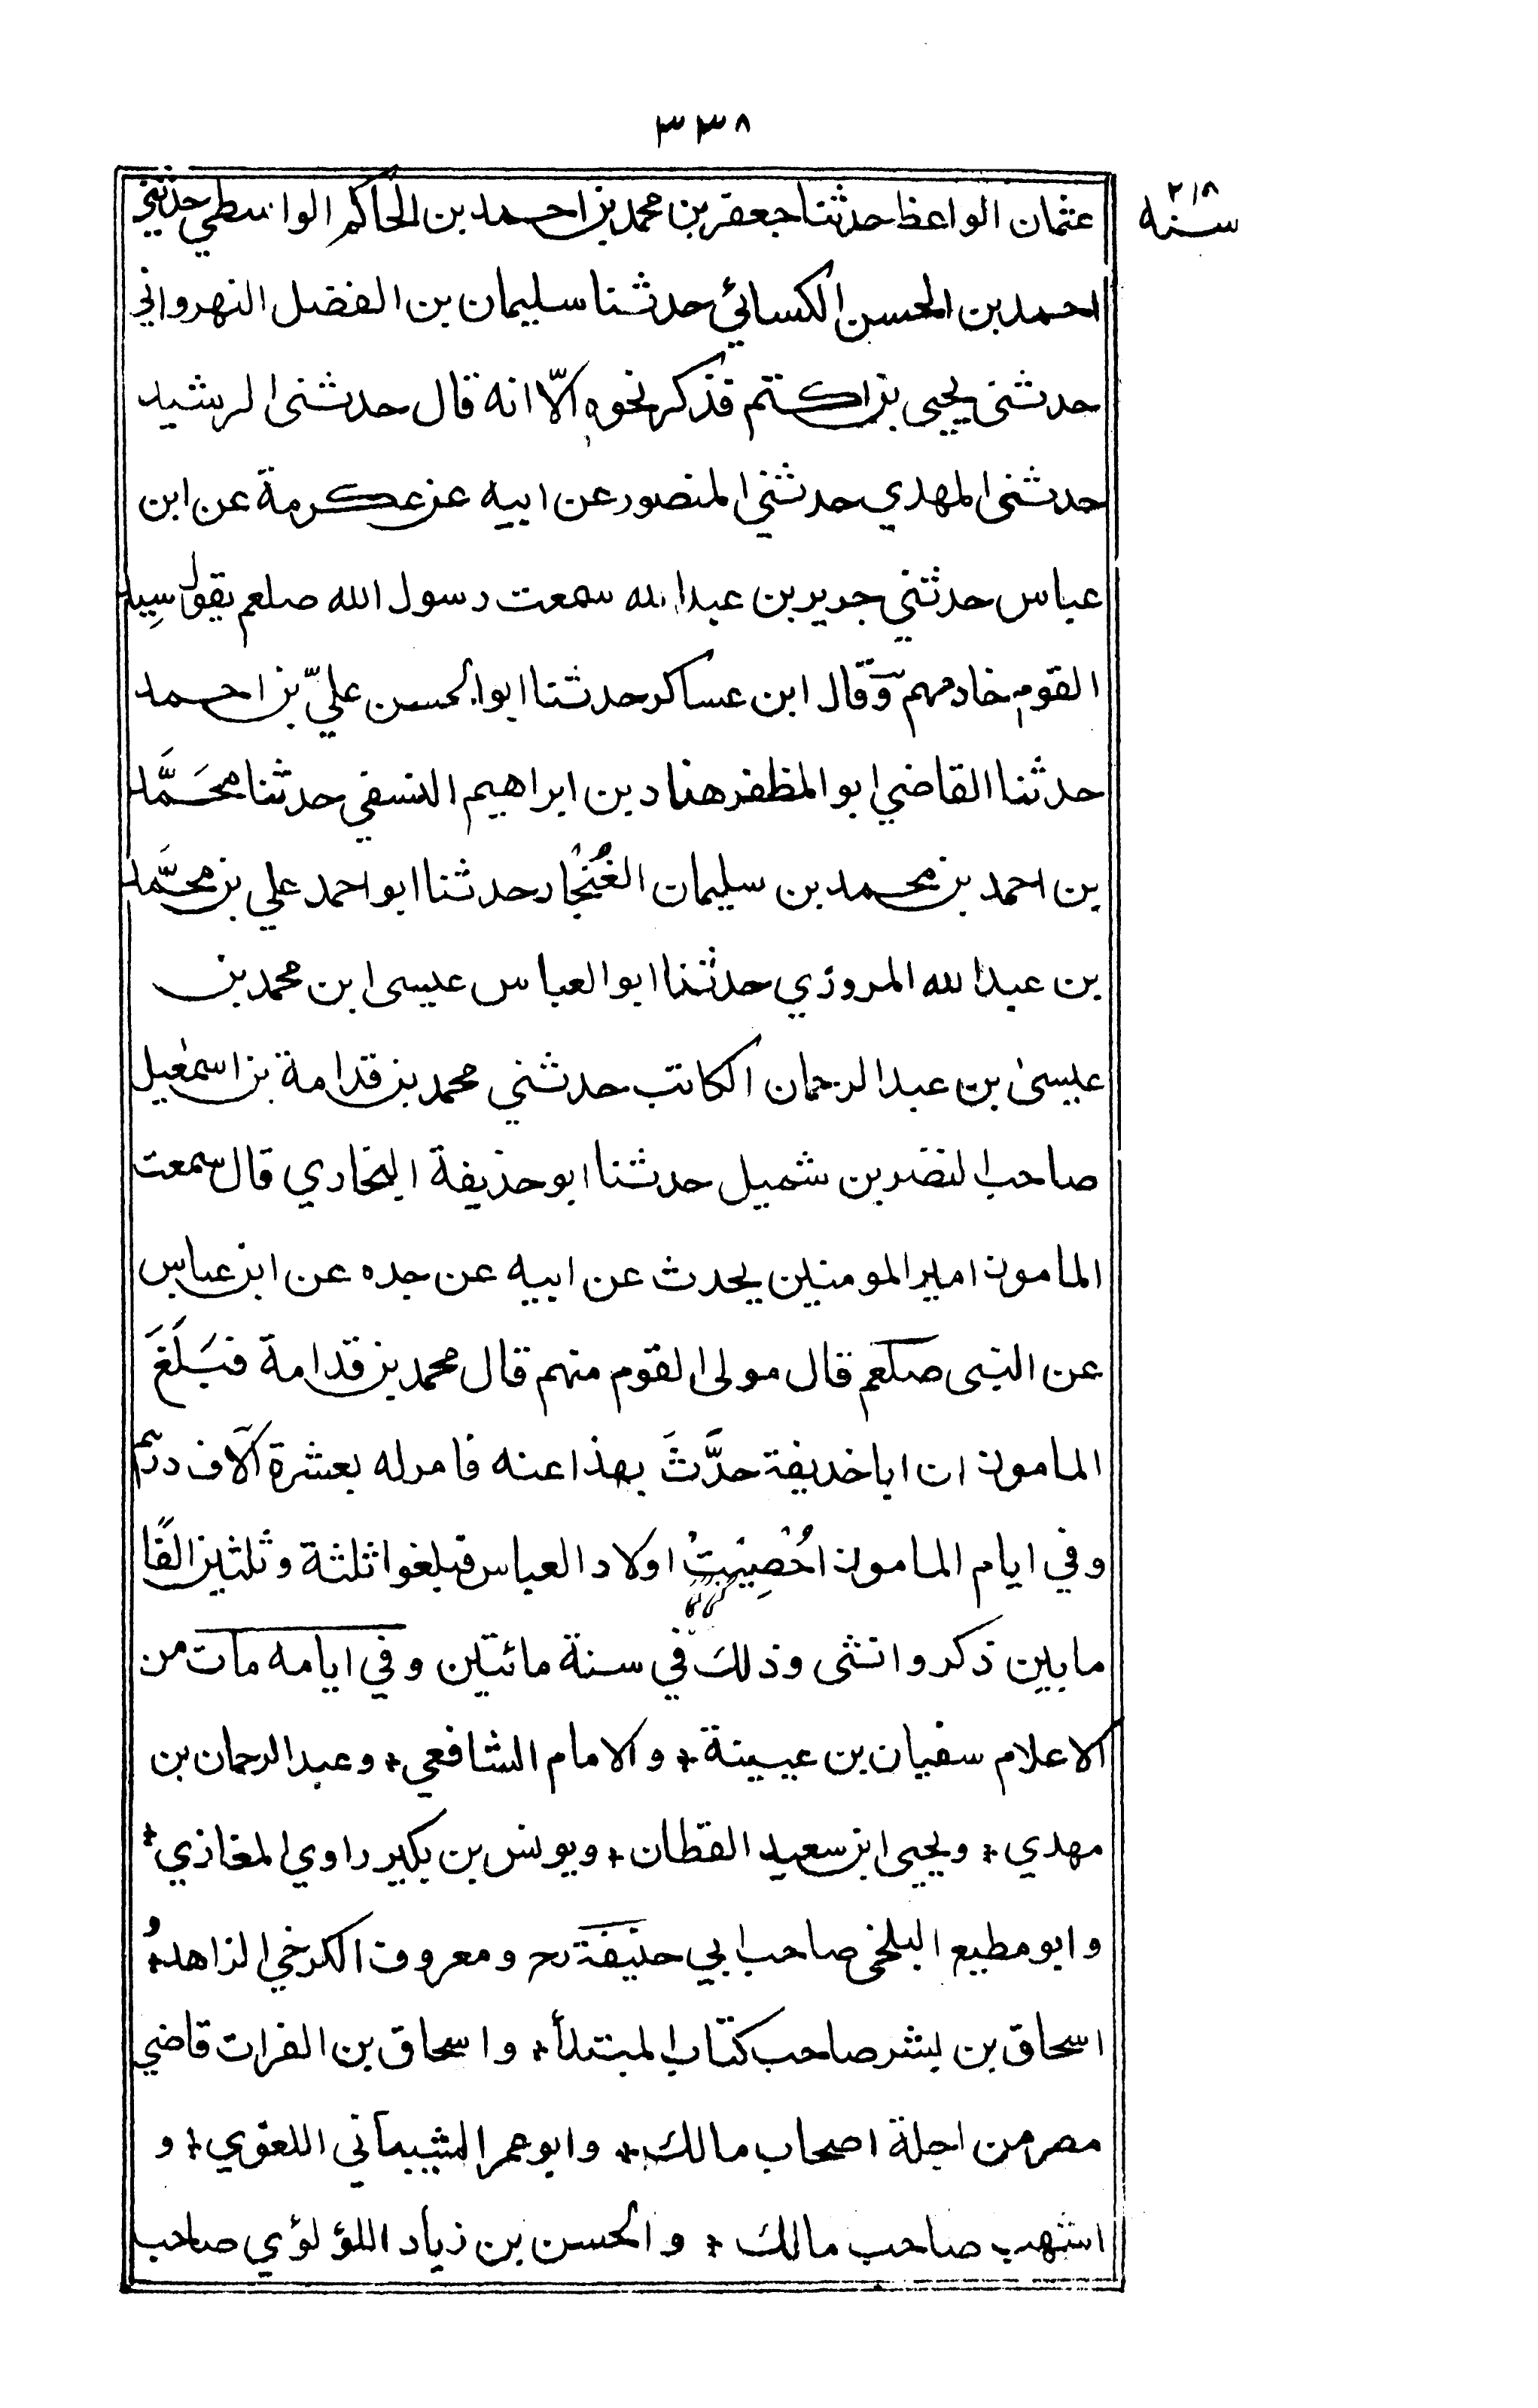 ٣٣٨
سنه ٢١٨
عثمان الواعظ حدثنا جعفر بن محمد بن احمد بن الحاكم الواسطي حدثني
احمد بن الحسن الكسائي حدثنا سليمان بن الفضل النهرواني
حدثنى يحيى بن اكثم فذكر نحوه الّا انه قال حدثنى الرشيد
حدثنى المهدي حدثني المنصور عن ابيه عن عكرمة عن ابن
عباس حدثني جرير بن عبد الله سمعت رسول الله صلعم يقول سيد
القوم خادمهم وقال ابن عساكر حدثنا ابو الحسن عليّ بن احمد
حدثنا القاضي ابو المظفر هناد بن ابراهيم النسفي حدثنا محَمَّد
بن احمد بن محمد بن سليمان الغُنْجار حدثنا ابو احمد علي بن محمَّد
بن عبد الله المروزي حدثنا ابو العباس عيسى ابن محمد بن
عيسىٰ بن عبد الرحمان الكاتب حدثني محمد بن قدامة بن اسمٰعيل
صاحب النضر بن شميل حدثنا ابو حذيفة البخاري قال سمعت
المامون امير المومنين يحدث عن ابيه عن جده عن ابن عباس
عن النبى صلعم قال مولى القوم منهم قال محمد بن قدامة فبَلَغَ
المامون ان ابا خذيفة حدَّثَ بهذا عنه فامر له بعشرة آلاف درهم
وفي ايام المامون اُحْصِيَتْ اولاد العباس فبلغوا ثلثة وثلثين الفًا
ما بين ذكر وانثى وذلك في سنة مائتين وفي ايامه مات من
الاعلام سفيان بن عيينة * والامام الشافعي * وعبد الرحمان بن
مهدي * ويحيى ابن سعيد القطان * ويونس بن بكير راوي المغازي *
وابو مطيع البلخى صاحب ابي حنيفة رحـ ومعروف الكرخي الزاهد * و
اسحاق بن بشر صاحب كتاب المبتدأ * واسحاق بن الفرات قاضي
مصر من اجلة اصحاب مالك * وابو عمر الشيباني اللغوي * و
اشهب صاحب مالك * والحسن بن زياد اللؤلؤي صاحب